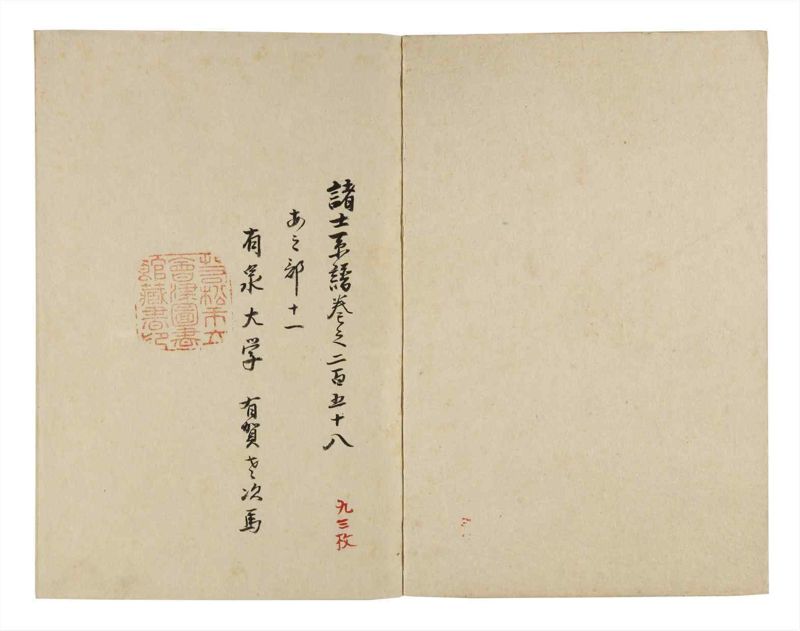 諸士系譜巻之二百五十八
あ之部十一
有泉大学 有賀喜次馬
九三枚
若松市立
會津圖書
館藏書印